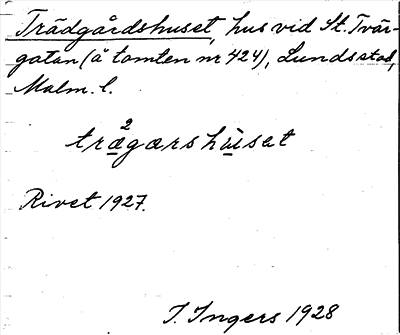 Trädgårdshuset, hus vid St. Tvär-
gatan (å tomten nr 424), Lunds stad,
Malm. l.
2
trægærshùsat
Rivet 1927.
I. Ingers 1928